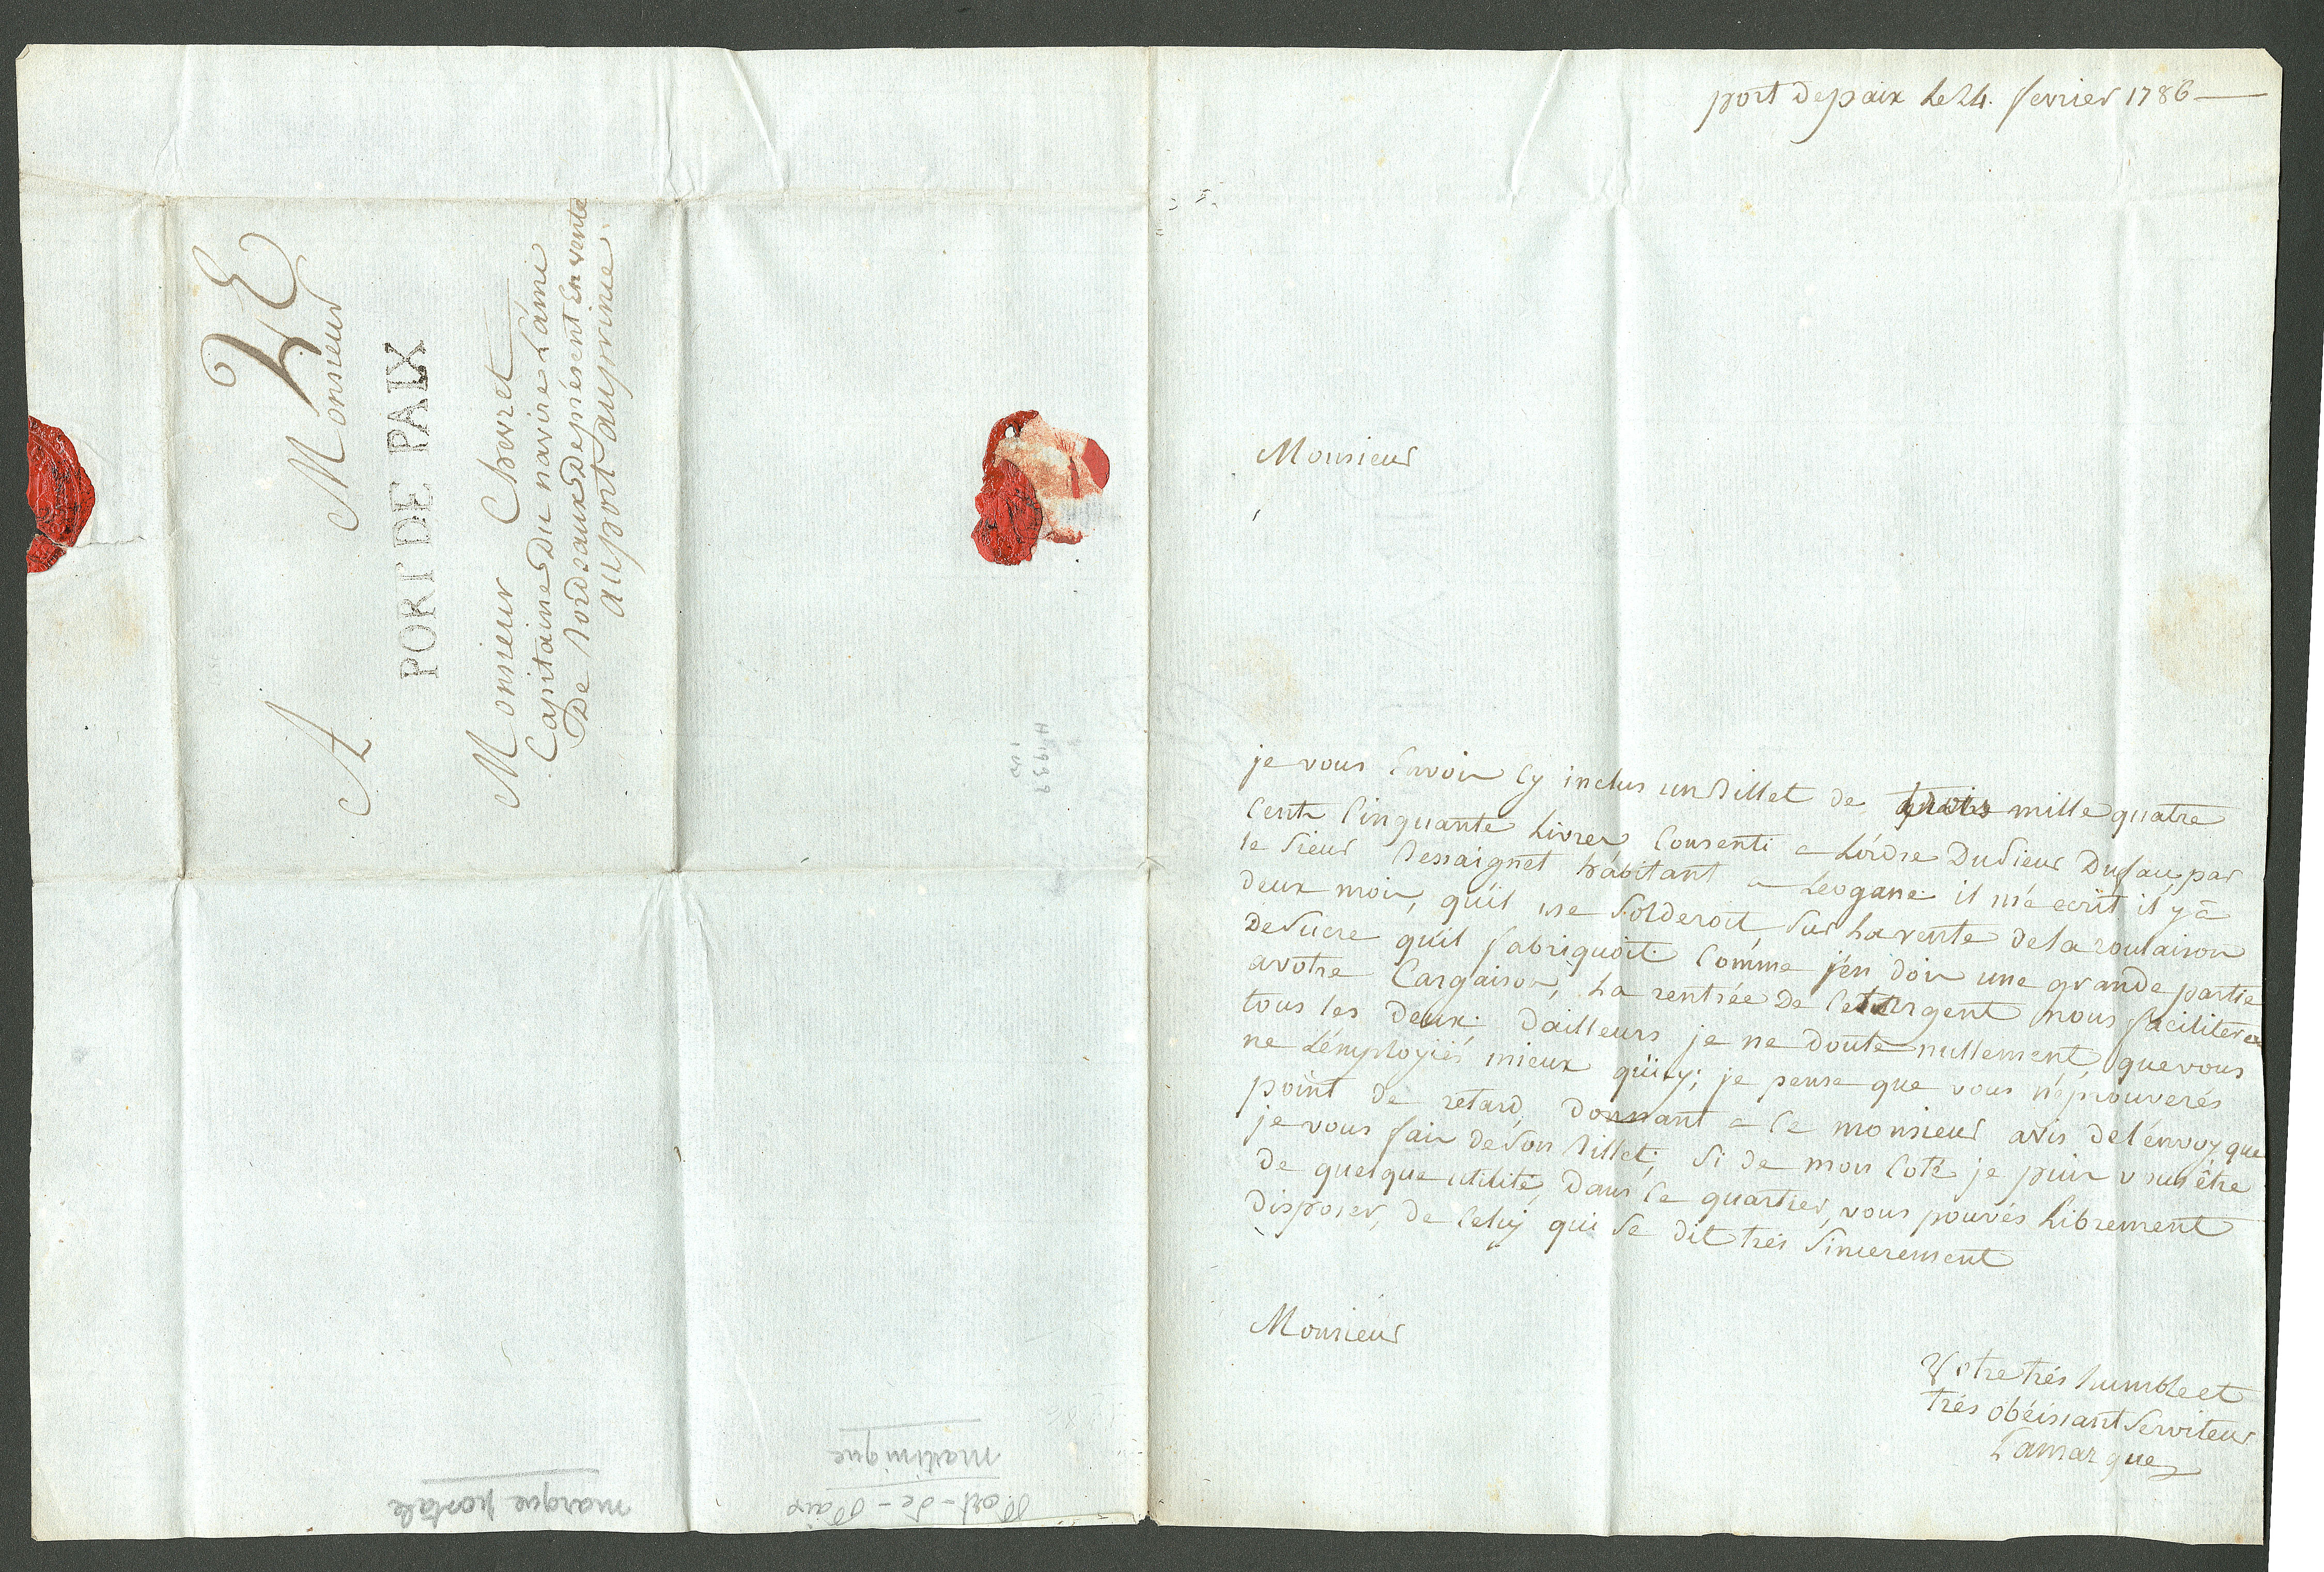 port de paix le 24. fevrier 1786
Monsieur
je vous Envoir Cy inclus un billet de trois mille quatre
Cents Cinquante Livres Consenti a Lórdre Du Sieur Dufau, par
le Sieur Dessaignet hábitant a Leogane il m'a ecrit il y a
deux mois, qu'il me Solderoit, Sur La vente de la roulaison
De Sucre qu'il fabriquoit. Comme j'en dois une grande partie
a votre Cargaison, La rentrée De Cet argent nous facilitera
tous les Deux; Dailleurs je ne Doute nullement, que vous
ne L'employiés mieux qu'icy; je pense que vous n'éprouverés
point de retard, Donnant a Ce monsieur avis de l'envoy que
je vous fair de Son billet; Si de mon Coté je puis vous être
de quelque utilité, Dans Ce quartier, vous pouvés Librement
Disposer, de Celuy qui Se dit trés Sincerement
Monsieur
Votre trés humble et
trés obéissant Serviteur
Lamarque
A Monsieur
PORT DE PAIX
Monsieur Chevret
Capitaine Du navire L'ámi
De bordeaux Deprésent En vente
au port auprince
H 1939
marque postale
Port-de-Paix
martinique